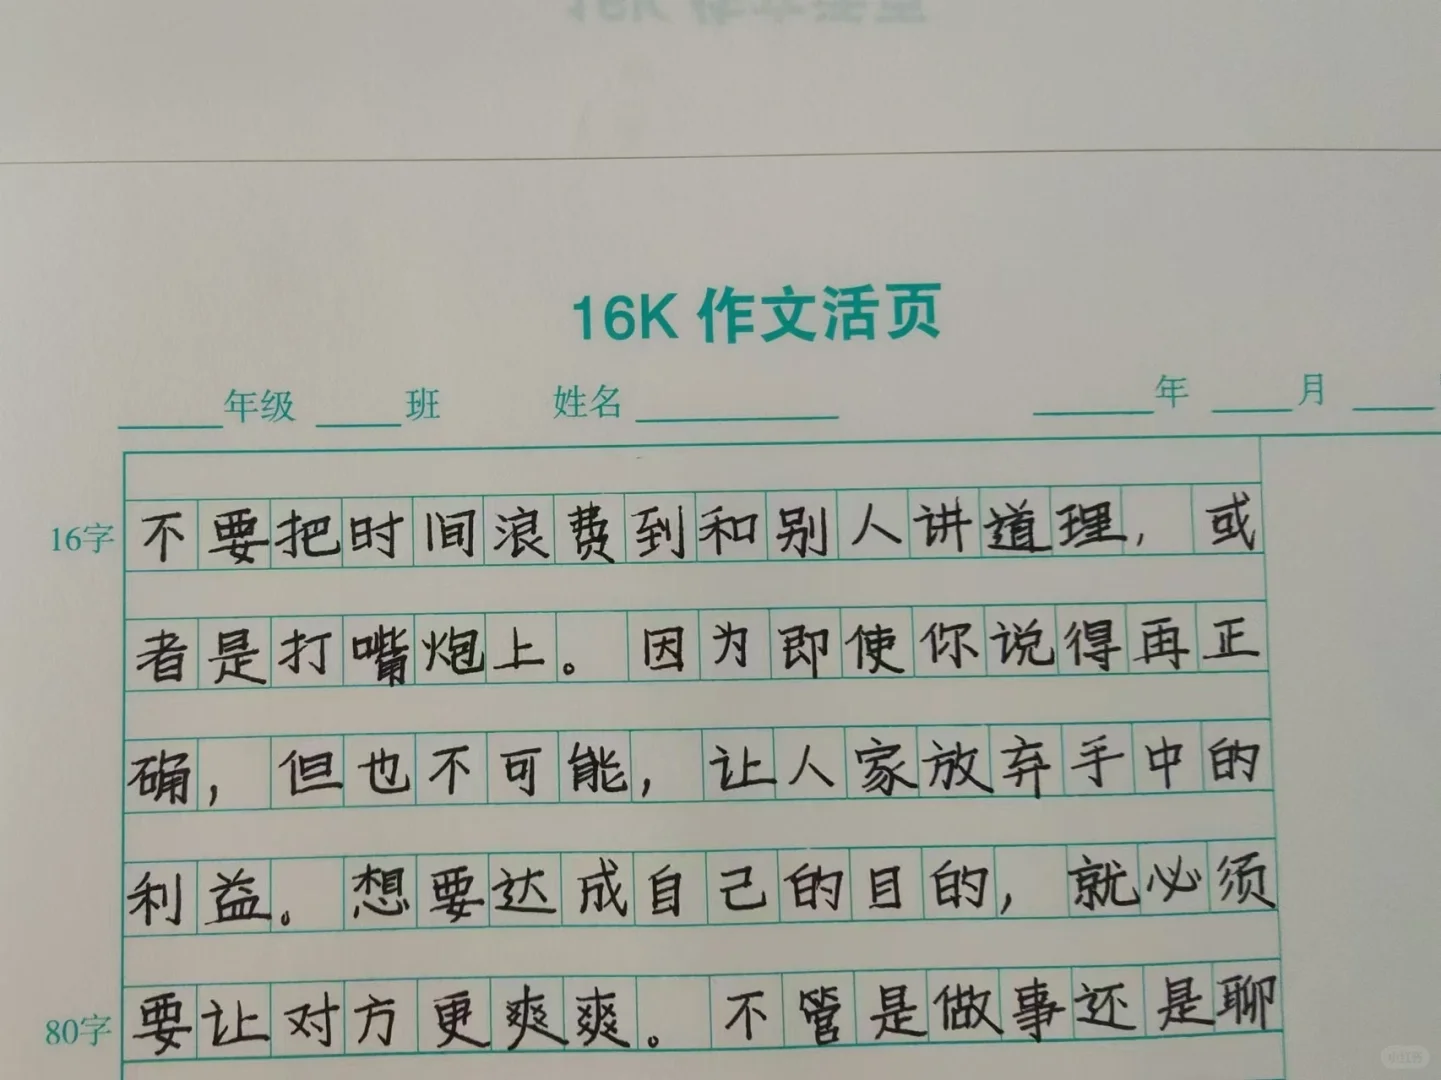 16K 作文活页
年级 班 姓名 年 月
16字 不要把时间浪费到和别人讲道理，或
者是打嘴炮上。因为即使你说得再正
确，但也不可能，让人家放弃手中的
利益。想要达成自己的目的，就必须
80字 要让对方更爽爽。不管是做事还是聊
小红书